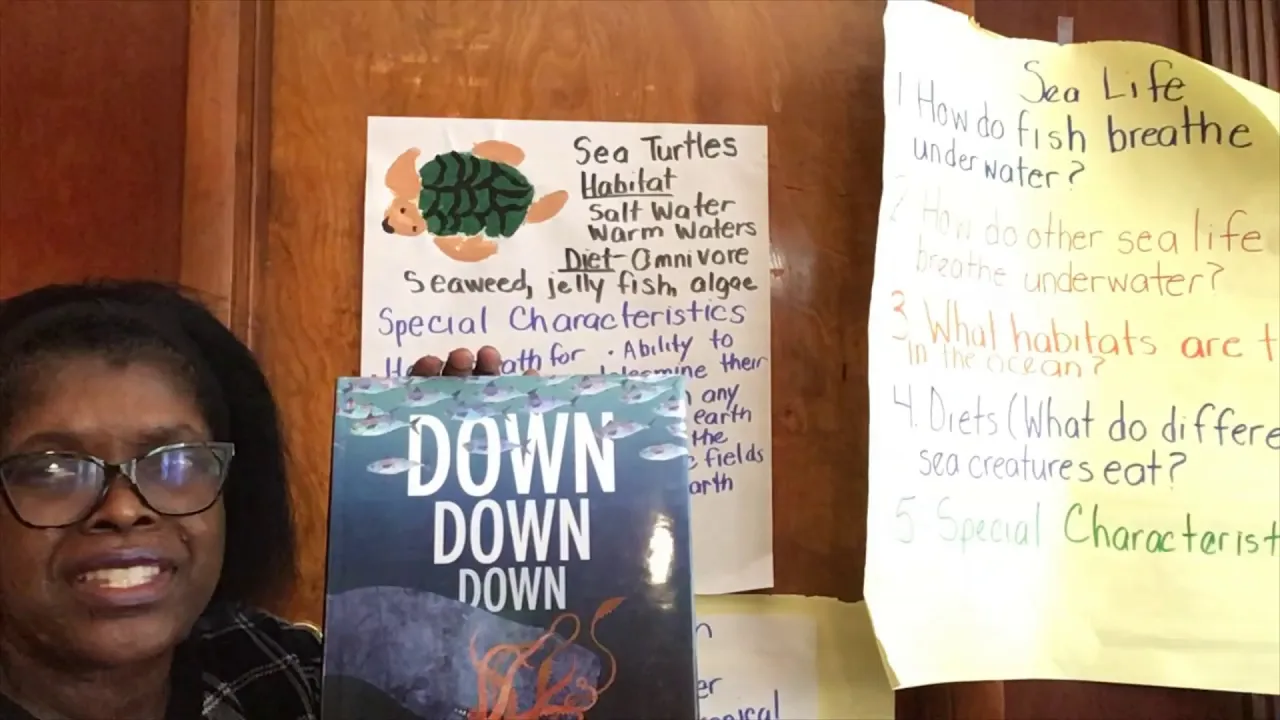 Sea Turtles
Habitat
Salt Water
Warm Waters
Diet-Omnivore
Seaweed, jelly fish, algae
Special Characteristics
for · Ability to
their
any
earth
the
fields
DOWN
DOWN
DOWN
Sea Life
1 How do fish breathe
underwater?
2 How do other sea life
breathe underwater?
3. What habitats are
in the ocean?
4. Diets (What do
sea creatures eat?
5 Special